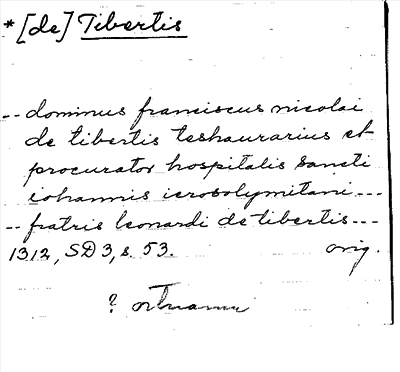 *[de] Tibertis
-- dominus franciscus nicolai
de tibertis teshaurarius et
procurator hospitalis sancti
iohannis ierosolymitani ---
-- fratris leonardi de tibertis ---
1312, SD 3, s. 53. orig.
?